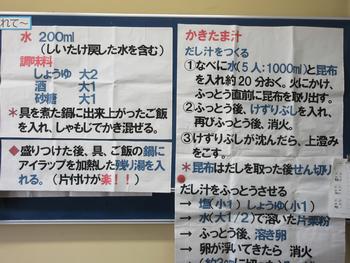 れて～
水 200ml
(しいたけ戻した水を含む)
調味料
しょうゆ 大2
酒 大1
砂糖 大1
＊具を煮た鍋に出来上がったご飯
を入れ、しゃもじでかき混ぜる。
◆盛りつけた後、具、ご飯の鍋に
アイラップを加熱した残り湯を
入れる。(片付けが楽！！)
かきたま汁
だし汁をつくる
①なべに水(5人:1000ml)と昆布
を入れ約20分おく。火にかけ、
ふっとう直前に昆布を取り出す。
②ふっとう後、けずりぶしを入れ、
再びふっとう後、消火。
③けずりぶしが沈んだら、上澄み
をこす。
＊昆布はだしを取った後せん切り
だし汁をふっとうさせる
→ 塩(小1) しょうゆ(小1)
→ 水(大1/2)で溶いた片栗粉
→ ふっとう後、溶き卵
→ 卵が浮いてきたら 消火